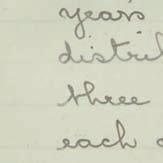 years
distrib
three
each